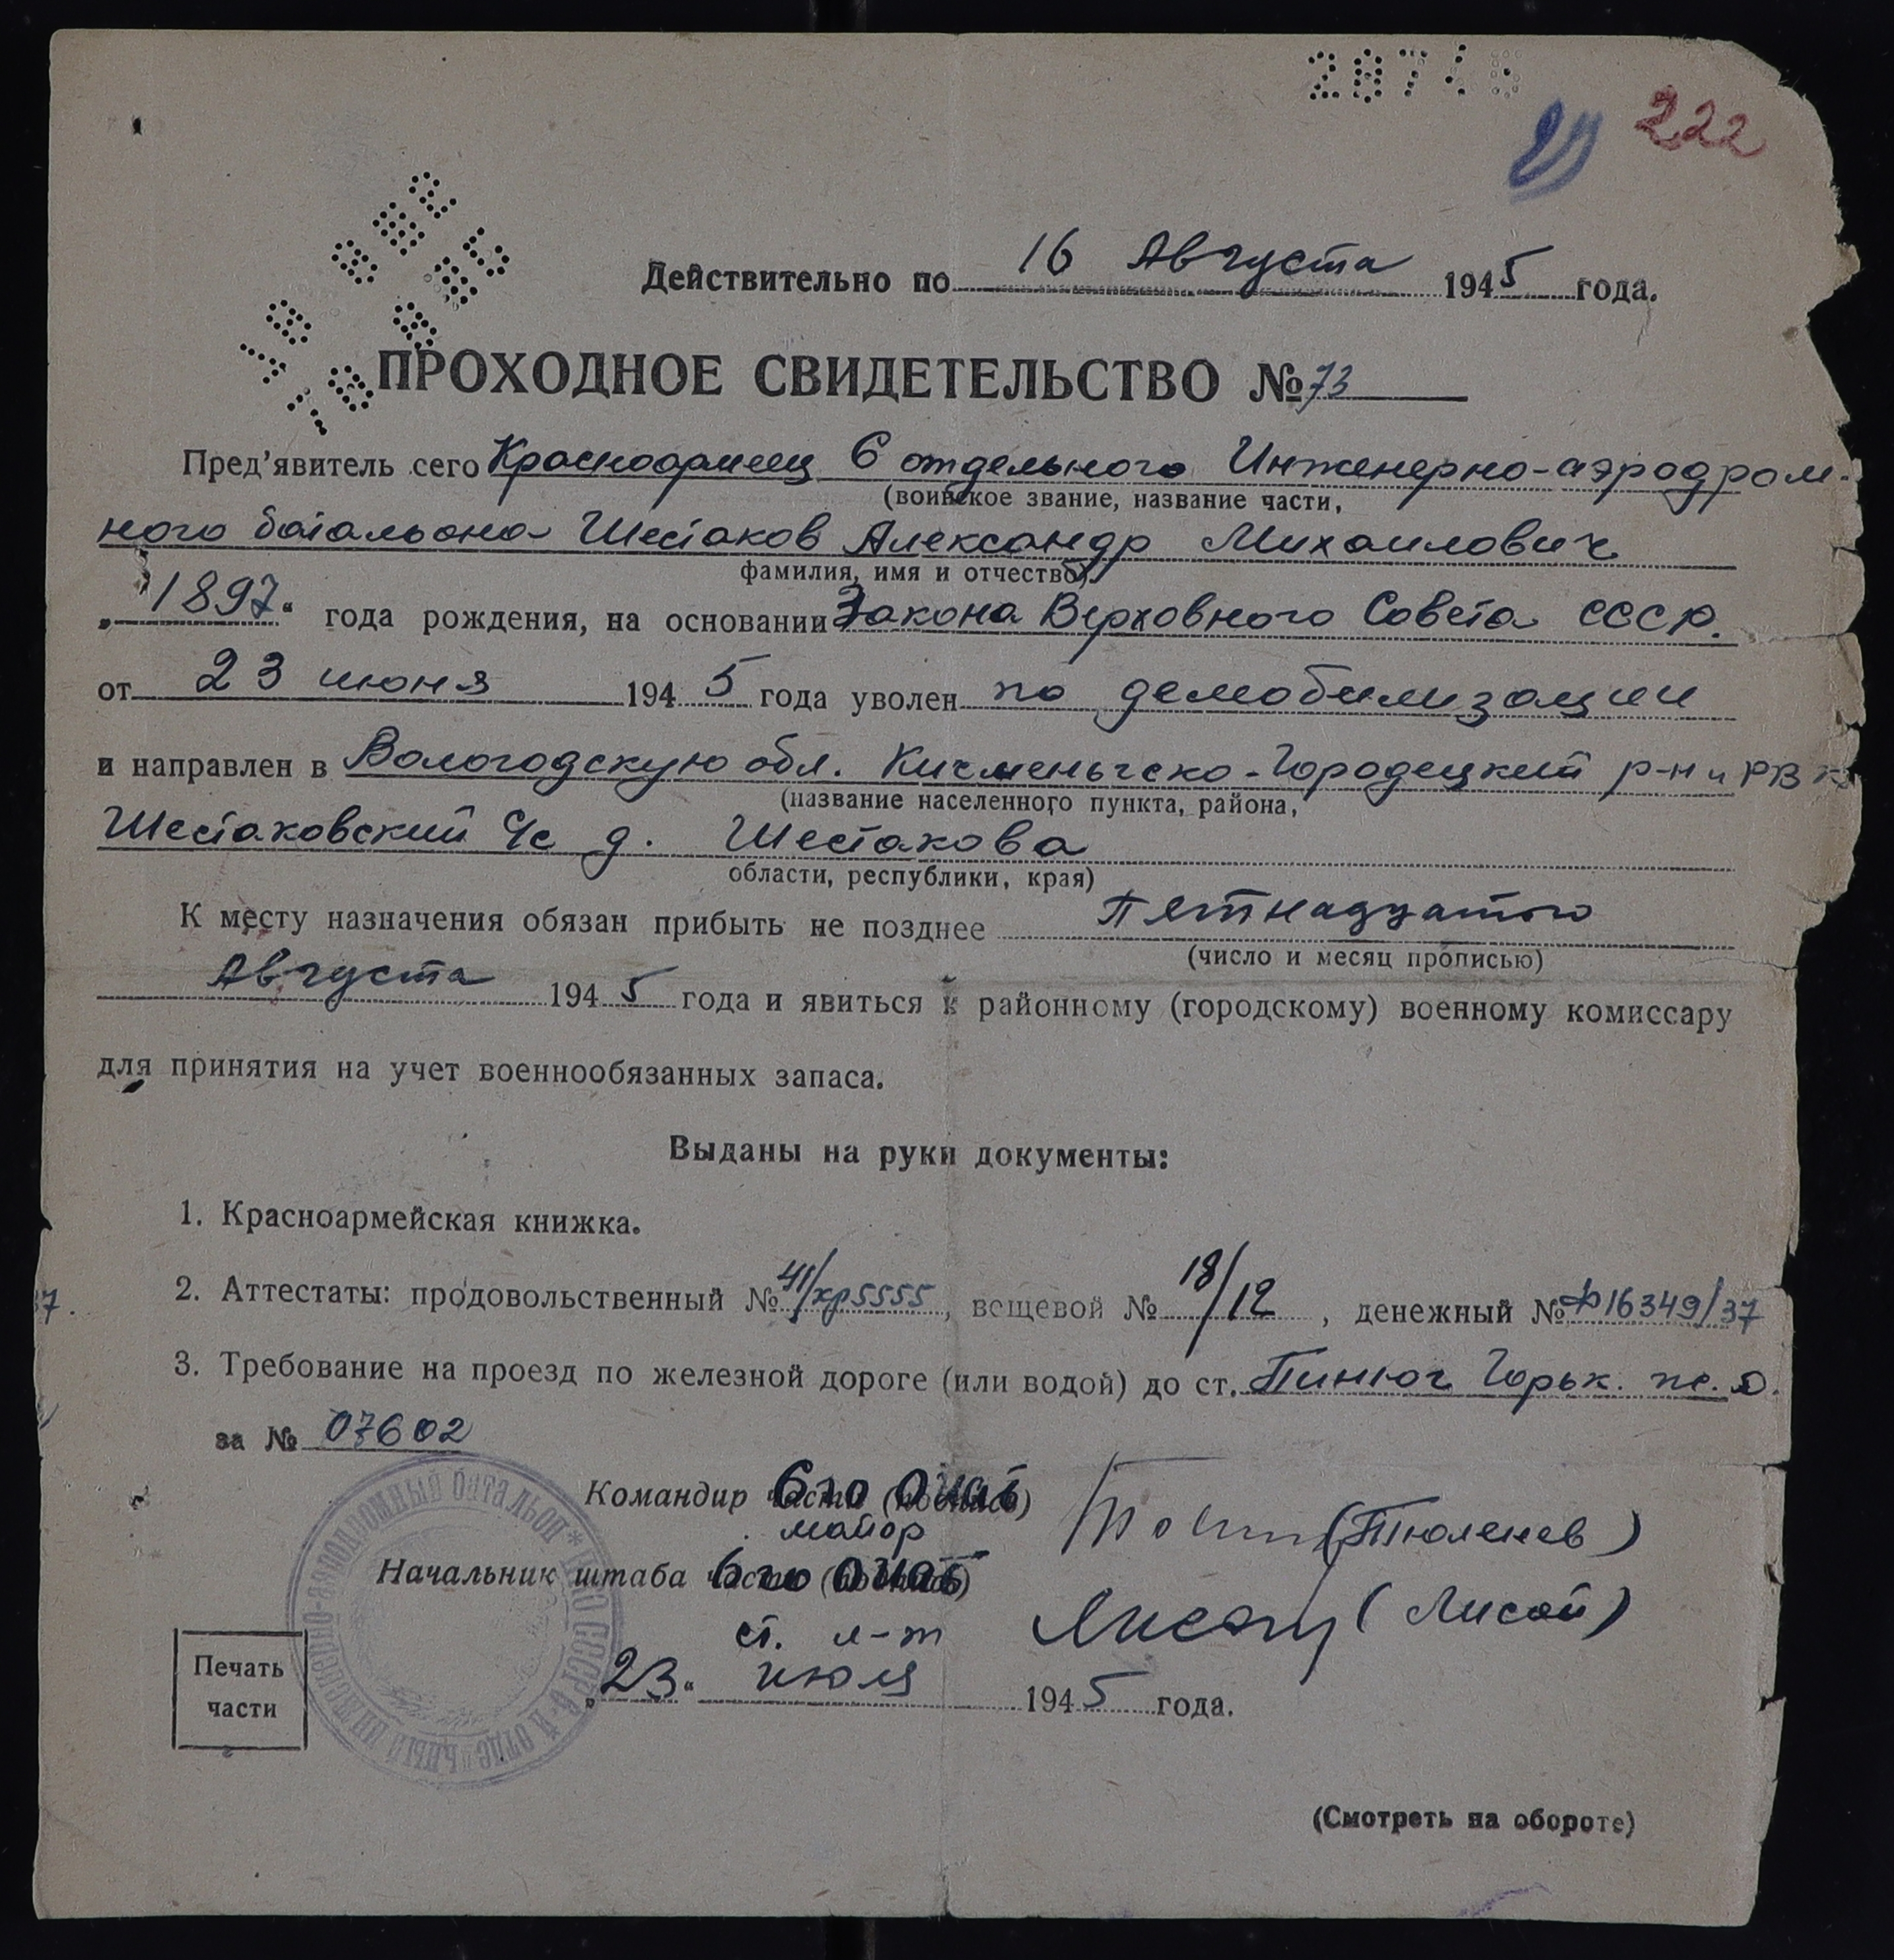 222
Действительно по 16 Августа 1945 года.
ПРОХОДНОЕ СВИДЕТЕЛЬСТВО № 73
Пред’явитель сего Красноармеец 6 отдельного Инженерно-аэродром-
(воинское звание, название части,
ного батальона Шестаков Александр Михаилович
фамилия, имя и отчество)
„1897“ года рождения, на основании Закона Верховного Совета СССР.
от 23 июня 1945 года уволен по демобилизации
и направлен в Вологодскую обл. Кичменьгско-Городецкий р-н и РВК
(название населенного пункта, района,
Шестаковский с/с д. Шестакова
области, республики, края)
К месту назначения обязан прибыть не позднее Пятнадцатого
(число и месяц прописью)
Августа 1945 года и явиться к районному (городскому) военному комиссару
для принятия на учет военнообязанных запаса.
Выданы на руки документы:
1. Красноармейская книжка.
2. Аттестаты: продовольственный № 41/хр5555, вещевой № 18/12, денежный № Ф16349/37
3. Требование на проезд по железной дороге (или водой) до ст. Пинюг Горьк. ж.д.
за № 07602
Командир части (подпись) 6го ОИАБ
майор (Тюленев)
Начальник штаба части (подпись) 6го ОИАБ
ст. л-т (Лисай)
„23“ июля 1945 года.
Печать
части
(Смотреть на обороте)